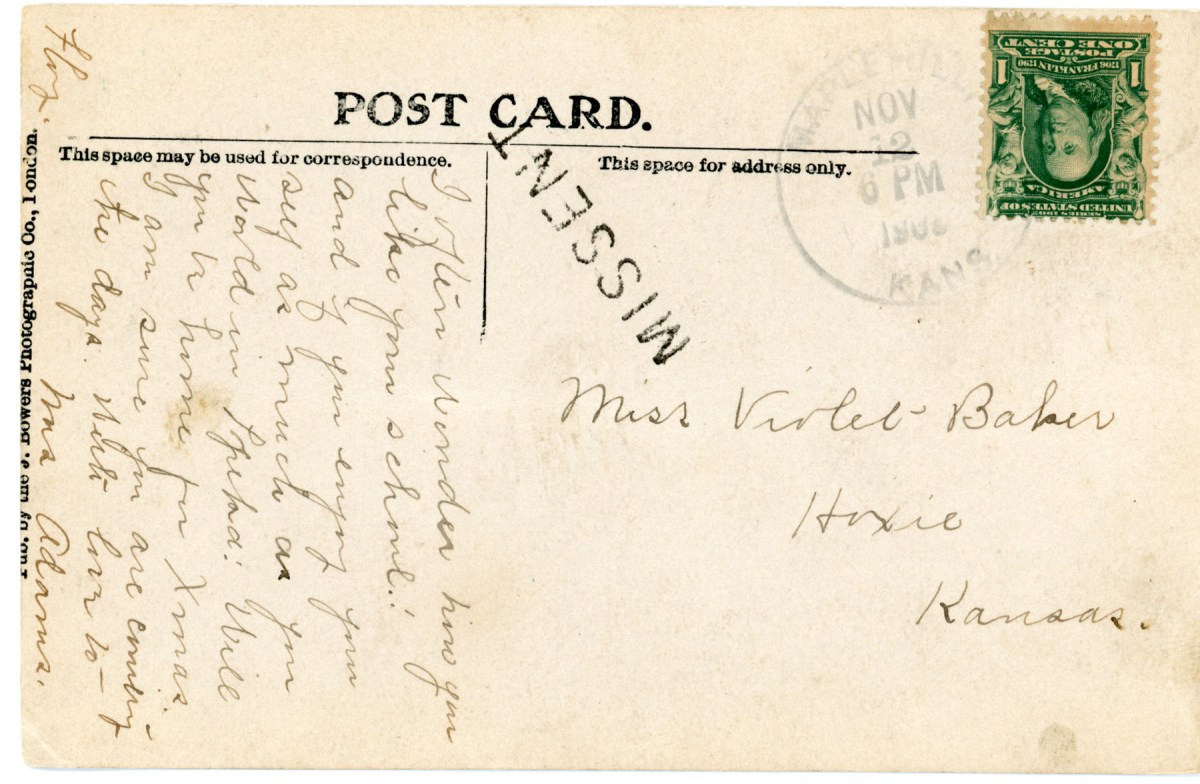 POST CARD.
This space may be used for correspondence.
This space for address only.
MISSENT
MAPLE HILL
NOV
12
6 PM
KANS.
SERIES 1902
UNITED STATES OF
AMERICA
1706 FRANKLIN 1790
1 1
POSTAGE
ONE CENT
I often wonder how you
like your school!.
and if you enjoy your
self as much as you
would in Topeka! Will
you be home for Xmas.
I am sure you are counting
the days. With love to -
Floy. Mrs Adams.
Miss Violet Baker
Hoxie
Kansas.
Pub. by the J. Bowers Photographic Co., London.